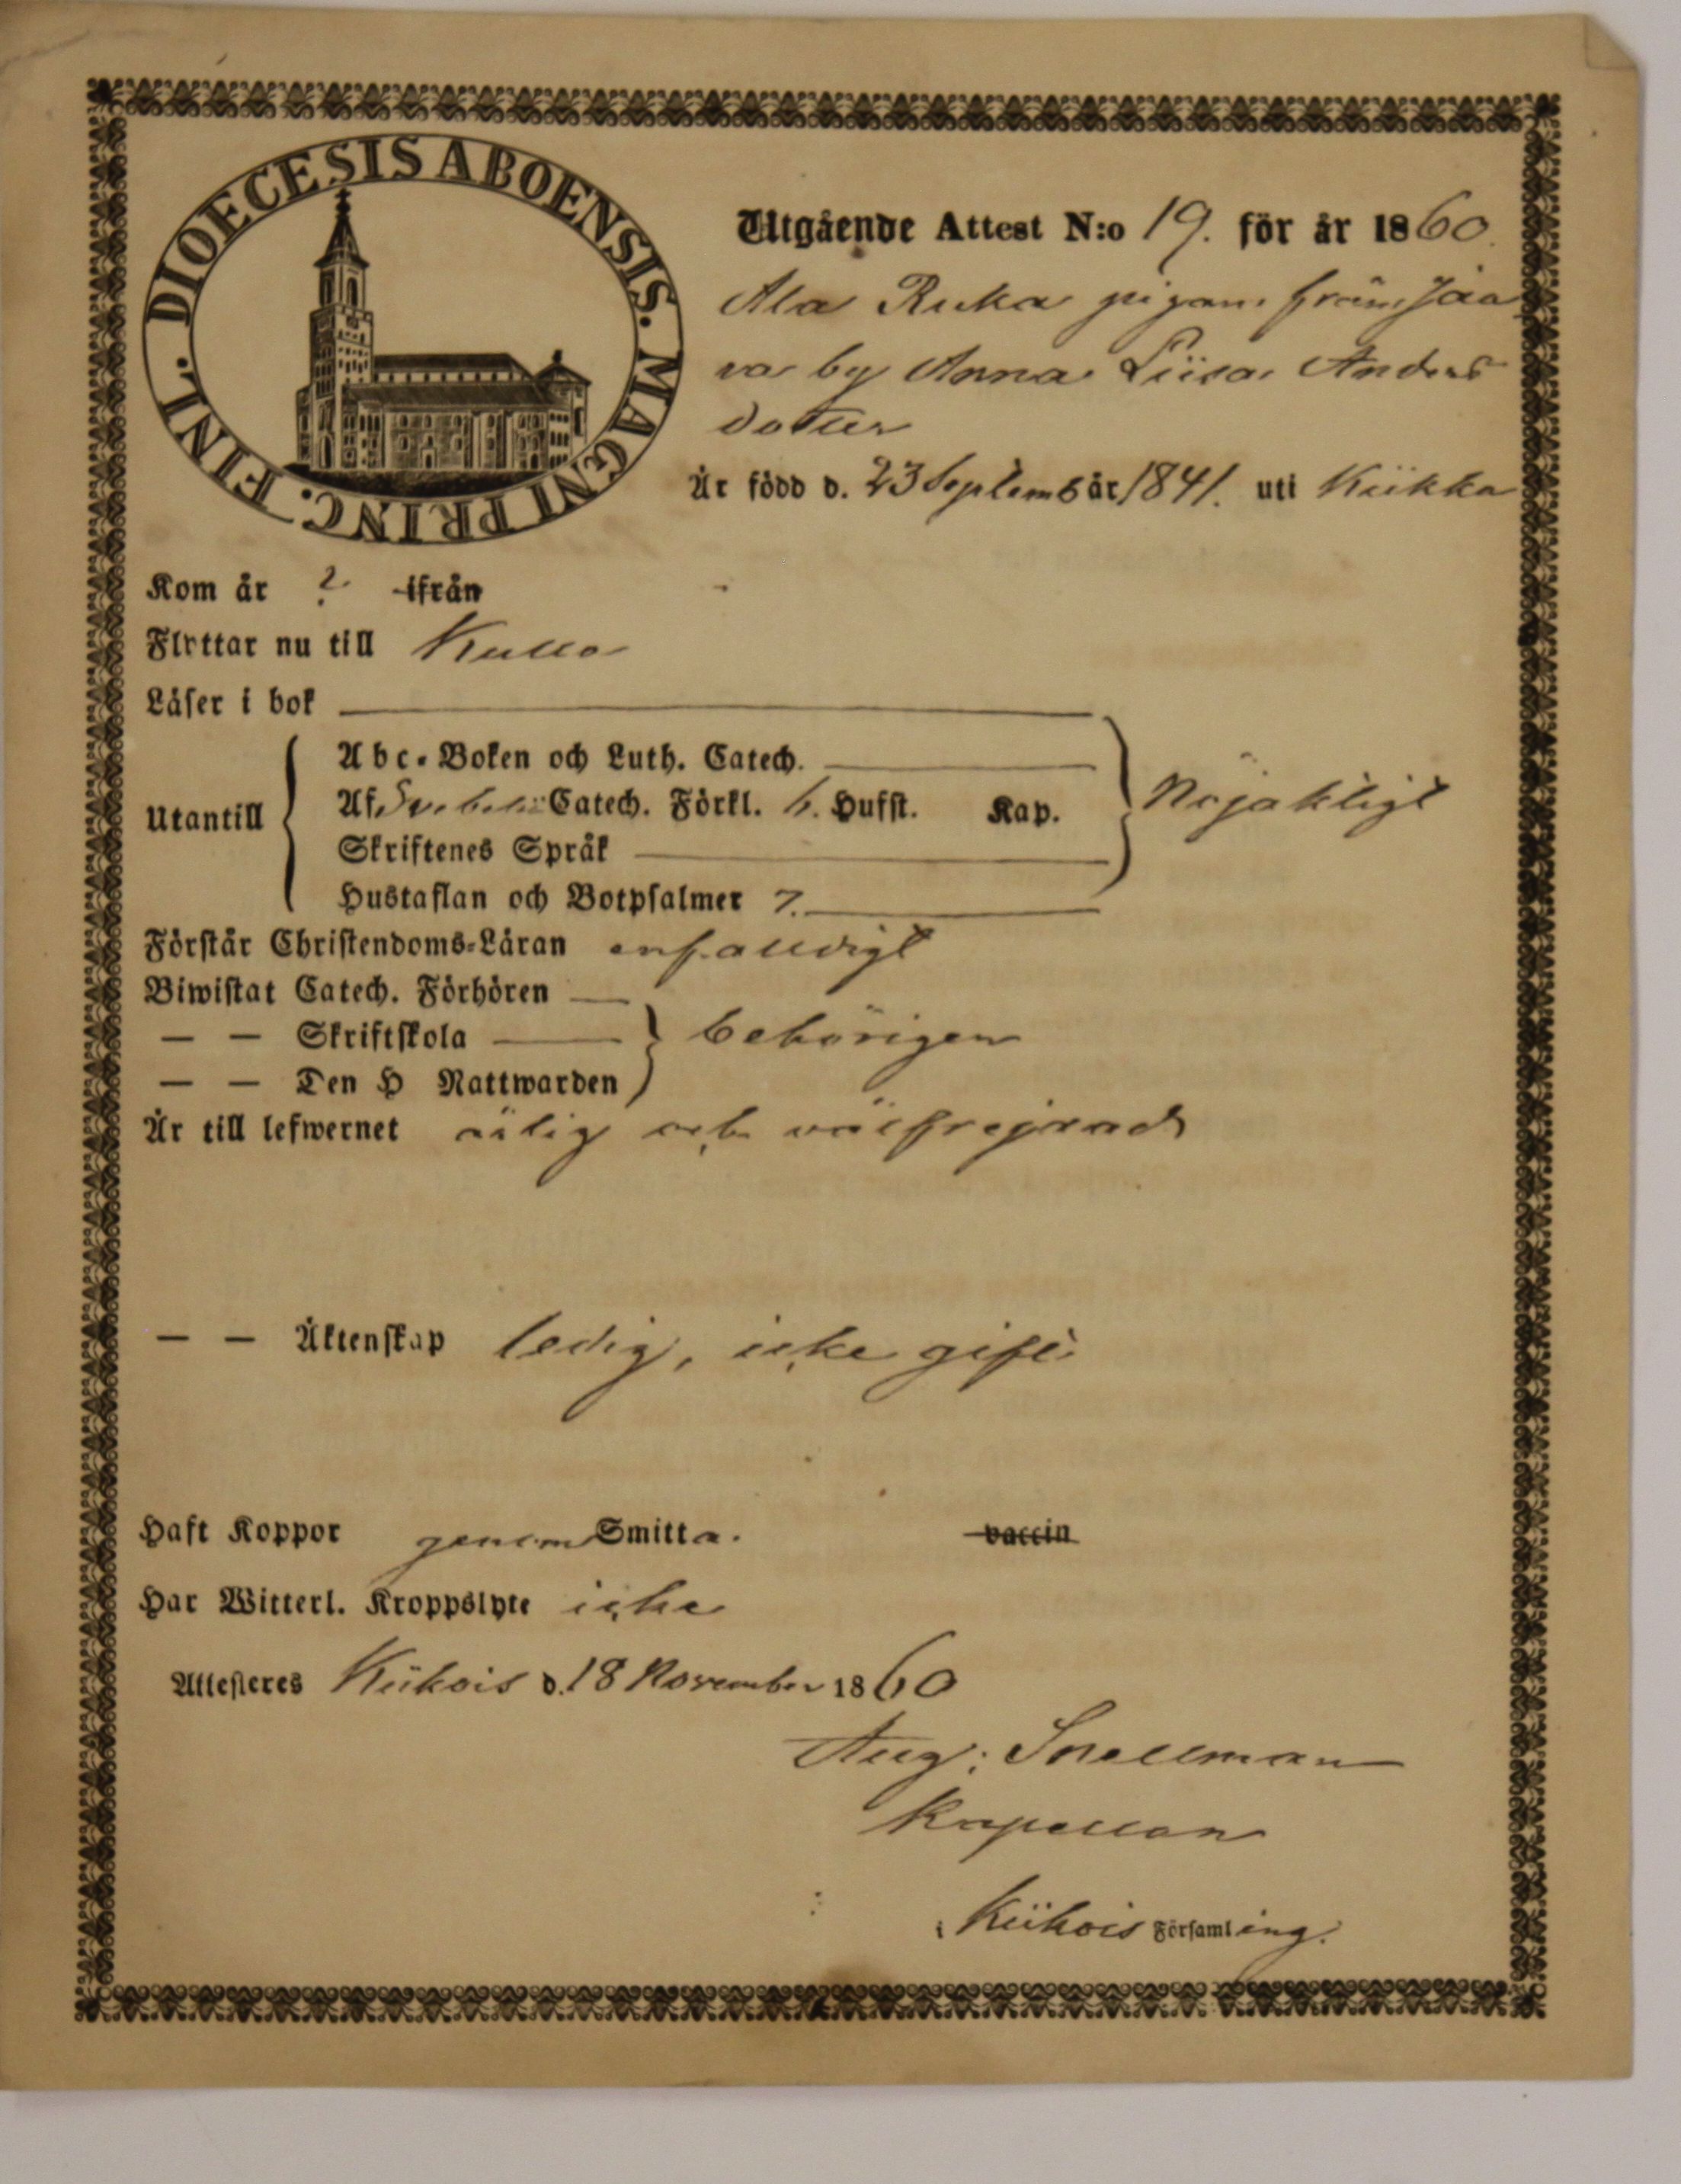 DIOECESIS ABOENSIS. MAGNI PRINC. FINL.
Utgående Attest N:o 19. för år 1860.
Ala Ruka pigan från Jaa
va by Anna Liisa Anders
dotter
Är född d. 23 Septemb år 1841. uti Kiikka
Kom år ? ifrån
Flyttar nu till Kullo
Läser i bok
Utantill
Abc-Boken och Luth. Catech.
Af Svebelii Catech. Förkl. 6. Hufst. Kap.
Nöjaktligt
Skriftenes Språk
Hustaflan och Botpsalmer 7.
Förstår Christendoms-Läran enfalldigt
Biwistat Catech. Förhören
— — Skriftskola
behörigen
— — Den H Nattwarden
Är till lefwernet ärlig och välfrejdad
— — Äktenskap ledig, icke gift
Haft Koppor genom Smitta. vaccin
Har Witterl. Kroppslyte icke
Attesteres Kiikois d. 18 November 1860
Aug: Snellman
Kapellan
i Kiikois Församling.